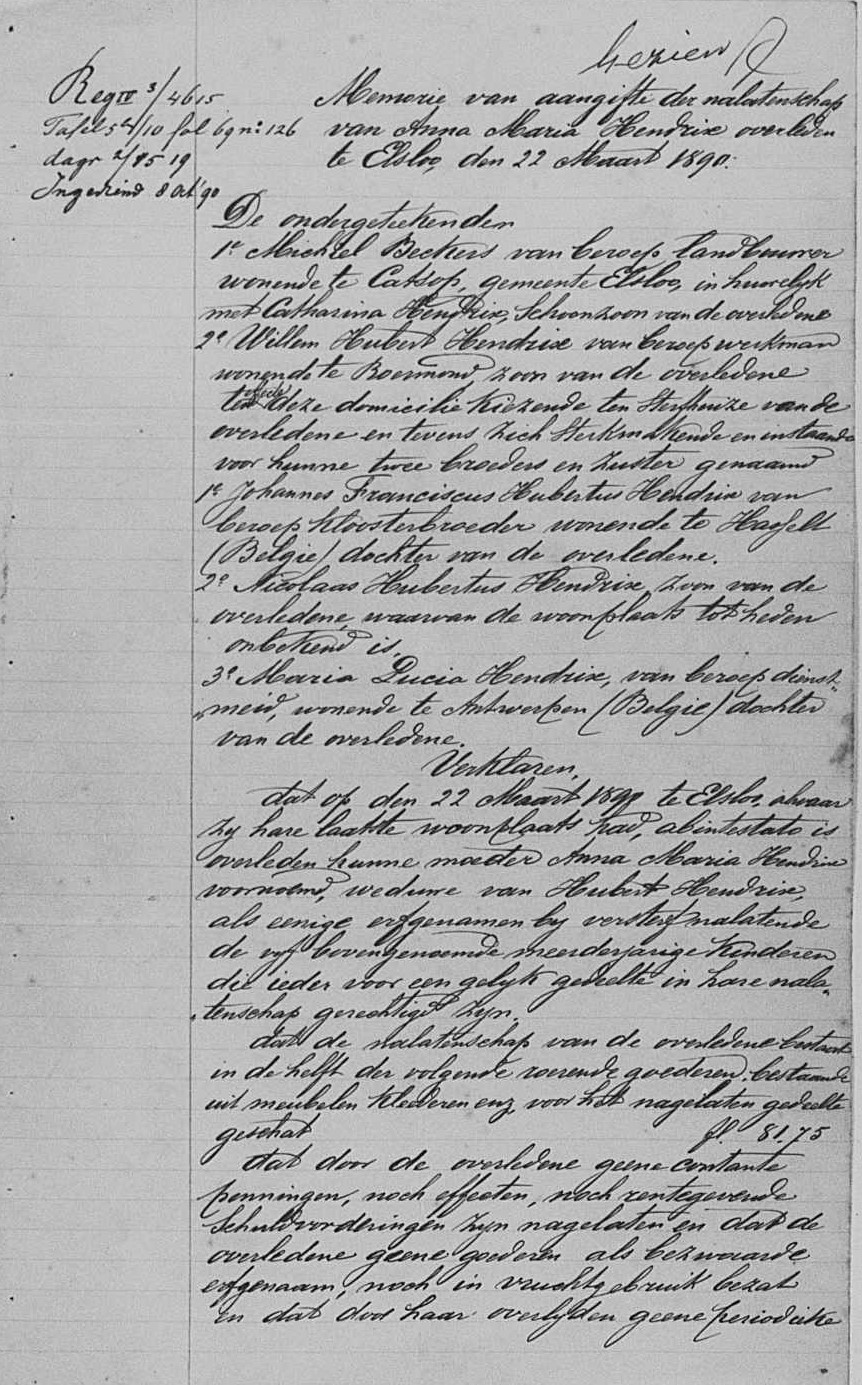 Gezien
Reg IV 3/4615
Tafel 5d/10 fol 69 n: 126
dagr 2/75 19
Ingediend 8 Oct '90
Memorie van aangifte der nalatenschap
van Anna Maria Hendrix overleden
te Elsloo, den 22 Maart 1890.
De ondergeteekenden
1e Michiel Beckers van beroep landbouwer
wonende te Catsop, gemeente Elsloo, in huwelyk
met Catharina Hendrix, Schoonzoon van de overledene
2e Willem Hubert Hendrix van beroep werkman
wonende te Roermond, zoon van de overledene
ten deze domicilie kiezende ten Sterfhuize van de
overledene en tevens zich Sterkmakende en instaande
voor hunne twee broeders en zuster genaamd
1e Johannes Franciscus Hubertus Hendrix van
beroep kloosterbroeder wonende te Hasselt
(Belgie) dochter van de overledene.
2e Nicolaas Hubertus Hendrix, zoon van de
overledene waarvan de woonplaats tot heden
onbekend is,
3e Maria Lucia Hendrix, van beroep dienst„
„meid, wonende te Antwerpen (Belgie) dochter
van de overledene.
Verklaren,
dat op den 22 Maart 1890 te Elsloo, alwaar
zy hare laatste woonplaats had, abintestato is
overleden hunne moeder Anna Maria Hendrix
voornoemd, weduwe van Hubert Hendrix,
als eenige erfgenamen by versterf nalatende
de vyf bovengenoemde meerderjarige kinderen
die ieder voor een gelyk gedeelte in hare nala„
„tenschap gerechtigd zyn.
dat de nalatenschap van de overledene bestaat
in de helft der volgende roerende goederen, bestaande
uit meubelen kleederen enz, voor het nagelaten gedeelte
geschat fl. 81.75
dat door de overledene geene contante
penningen, noch effecten, noch rentegevende
Schuldvorderingen zyn nagelaten en dat de
overledene geene goederen als bezwaarde
erfgenaam, noch in vruchtgebruik bezat
en dat door haar overlyden geene periodieke